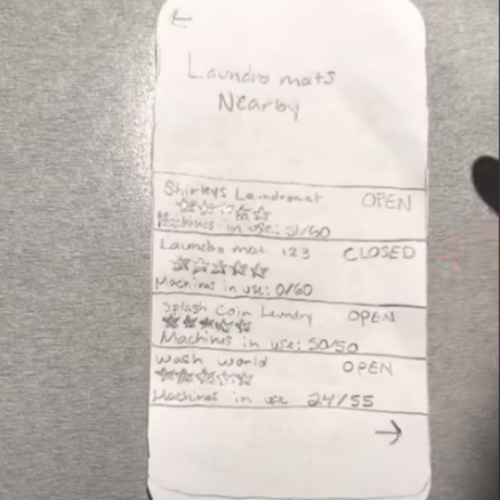 Laundro mats
Nearby
Shirleys Laundromat OPEN
Machines in use: 31/60
Laundro mat 123 CLOSED
Machines in use: 0/60
Splash Coin Laundry OPEN
Machines in use: 50/50
Wash World OPEN
Machines in use 24/55